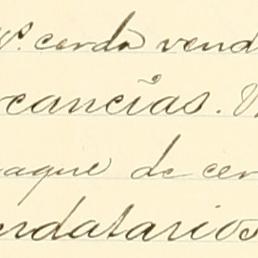 Nº. cerdo vend
rcancías.
aque de cer
ndatarios